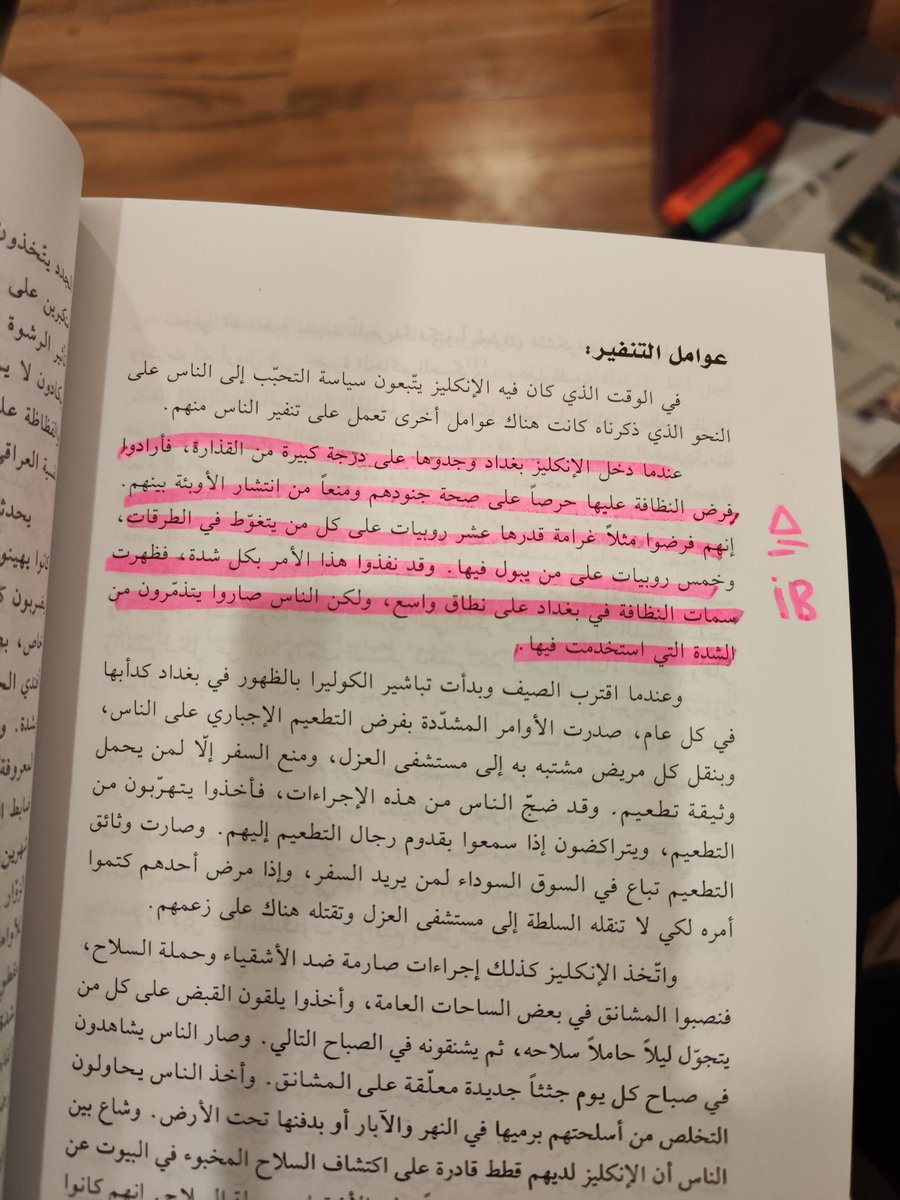 عوامل التنفير:
في الوقت الذي كان فيه الإنكليز يتّبعون سياسة التحبّب إلى الناس على
النحو الذي ذكرناه كانت هناك عوامل أخرى تعمل على تنفير الناس منهم.
عندما دخل الإنكليز بغداد وجدوها على درجة كبيرة من القذارة، فأرادوا
فرض النظافة عليها حرصاً على صحة جنودهم ومنعاً من انتشار الأوبئة بينهم.
إنهم فرضوا مثلاً غرامة قدرها عشر روبيات على كل من يتغوّط في الطرقات،
وخمس روبيات على من يبول فيها. وقد نفذوا هذا الأمر بكل شدة، فظهرت
سمات النظافة في بغداد على نطاق واسع، ولكن الناس صاروا يتذمّرون من
الشدة التي استخدمت فيها.
iB
وعندما اقترب الصيف وبدأت تباشير الكوليرا بالظهور في بغداد كدأبها
في كل عام، صدرت الأوامر المشدّدة بفرض التطعيم الإجباري على الناس،
وبنقل كل مريض مشتبه به إلى مستشفى العزل، ومنع السفر إلّا لمن يحمل
وثيقة تطعيم. وقد ضجّ الناس من هذه الإجراءات، فأخذوا يتهرّبون من
التطعيم، ويتراكضون إذا سمعوا بقدوم رجال التطعيم إليهم. وصارت وثائق
التطعيم تباع في السوق السوداء لمن يريد السفر، وإذا مرض أحدهم كتموا
أمره لكي لا تنقله السلطة إلى مستشفى العزل وتقتله هناك على زعمهم.
واتّخذ الإنكليز كذلك إجراءات صارمة ضد الأشقياء وحملة السلاح،
فنصبوا المشانق في بعض الساحات العامة، وأخذوا يلقون القبض على كل من
يتجوّل ليلاً حاملاً سلاحه، ثم يشنقونه في الصباح التالي. وصار الناس يشاهدون
في صباح كل يوم جثثاً جديدة معلّقة على المشانق. وأخذ الناس يحاولون
التخلص من أسلحتهم برميها في النهر والآبار أو بدفنها تحت الأرض. وشاع بين
الناس أن الإنكليز لديهم قطط قادرة على اكتشاف السلاح المخبوء في البيوت عن